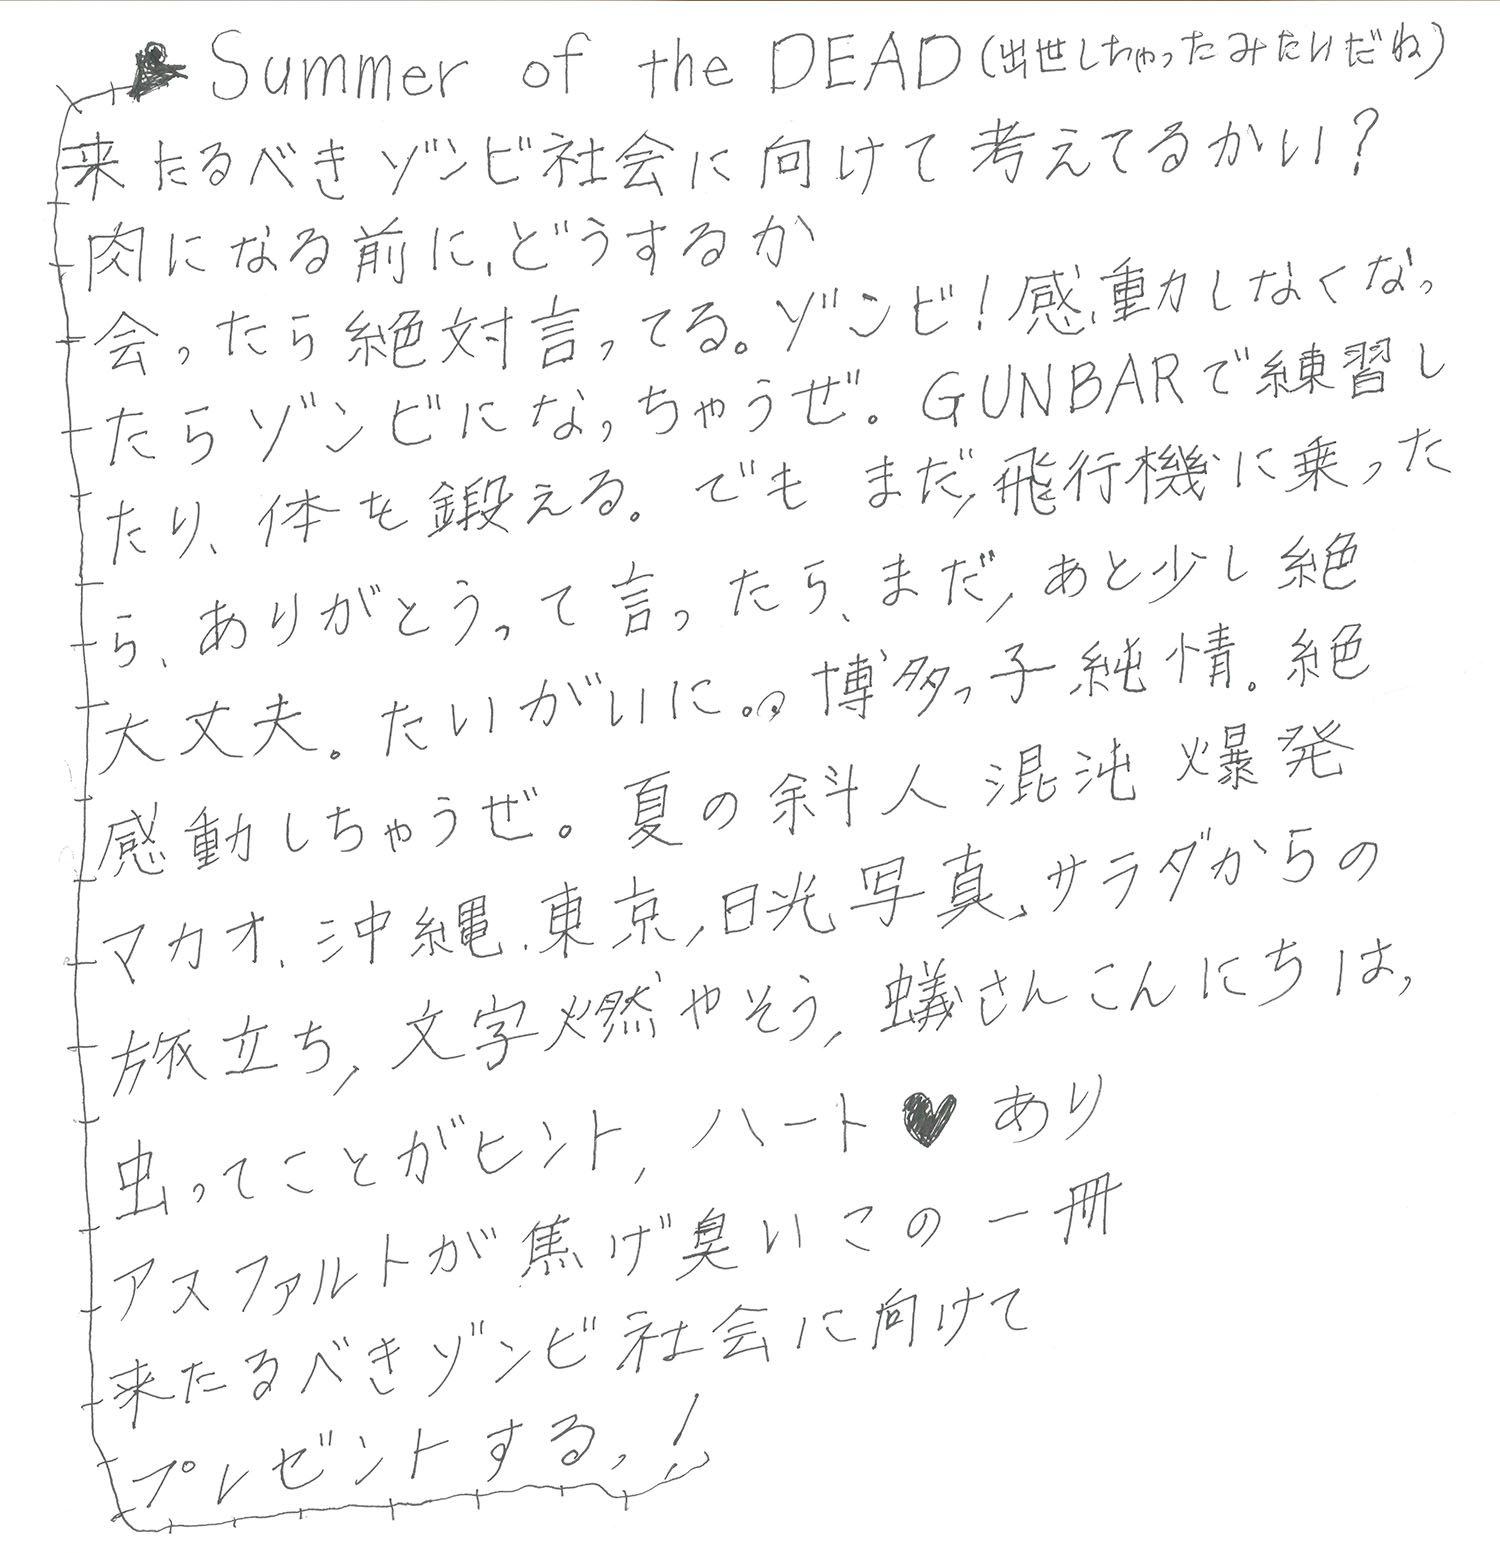 Summer of the DEAD (出世しちゃったみたいだね)
来たるべきゾンビ社会に向けて考えてるかい?
肉になる前に、どうするか
会ったら絶対言ってる。ゾンビ!感動しなくなっ
たらゾンビになっちゃうぜ。GUNBARで練習し
たり、体を鍛える。でもまだ、飛行機に乗った
ら、ありがとうって言ったら、まだ、あと少し絶
大丈夫。たいがいに。。博多っ子純情。絶
感動しちゃうぜ。夏の斜人 混沌 爆発
マカオ、沖縄、東京、日光写真、サラダからの
旅立ち、文字燃やそう、蟻さんこんにちは、
虫ってことがヒント、ハート♥あり
アスファルトが焦げ臭いこの一冊
来たるべきゾンビ社会に向けて
プレゼントするっ!